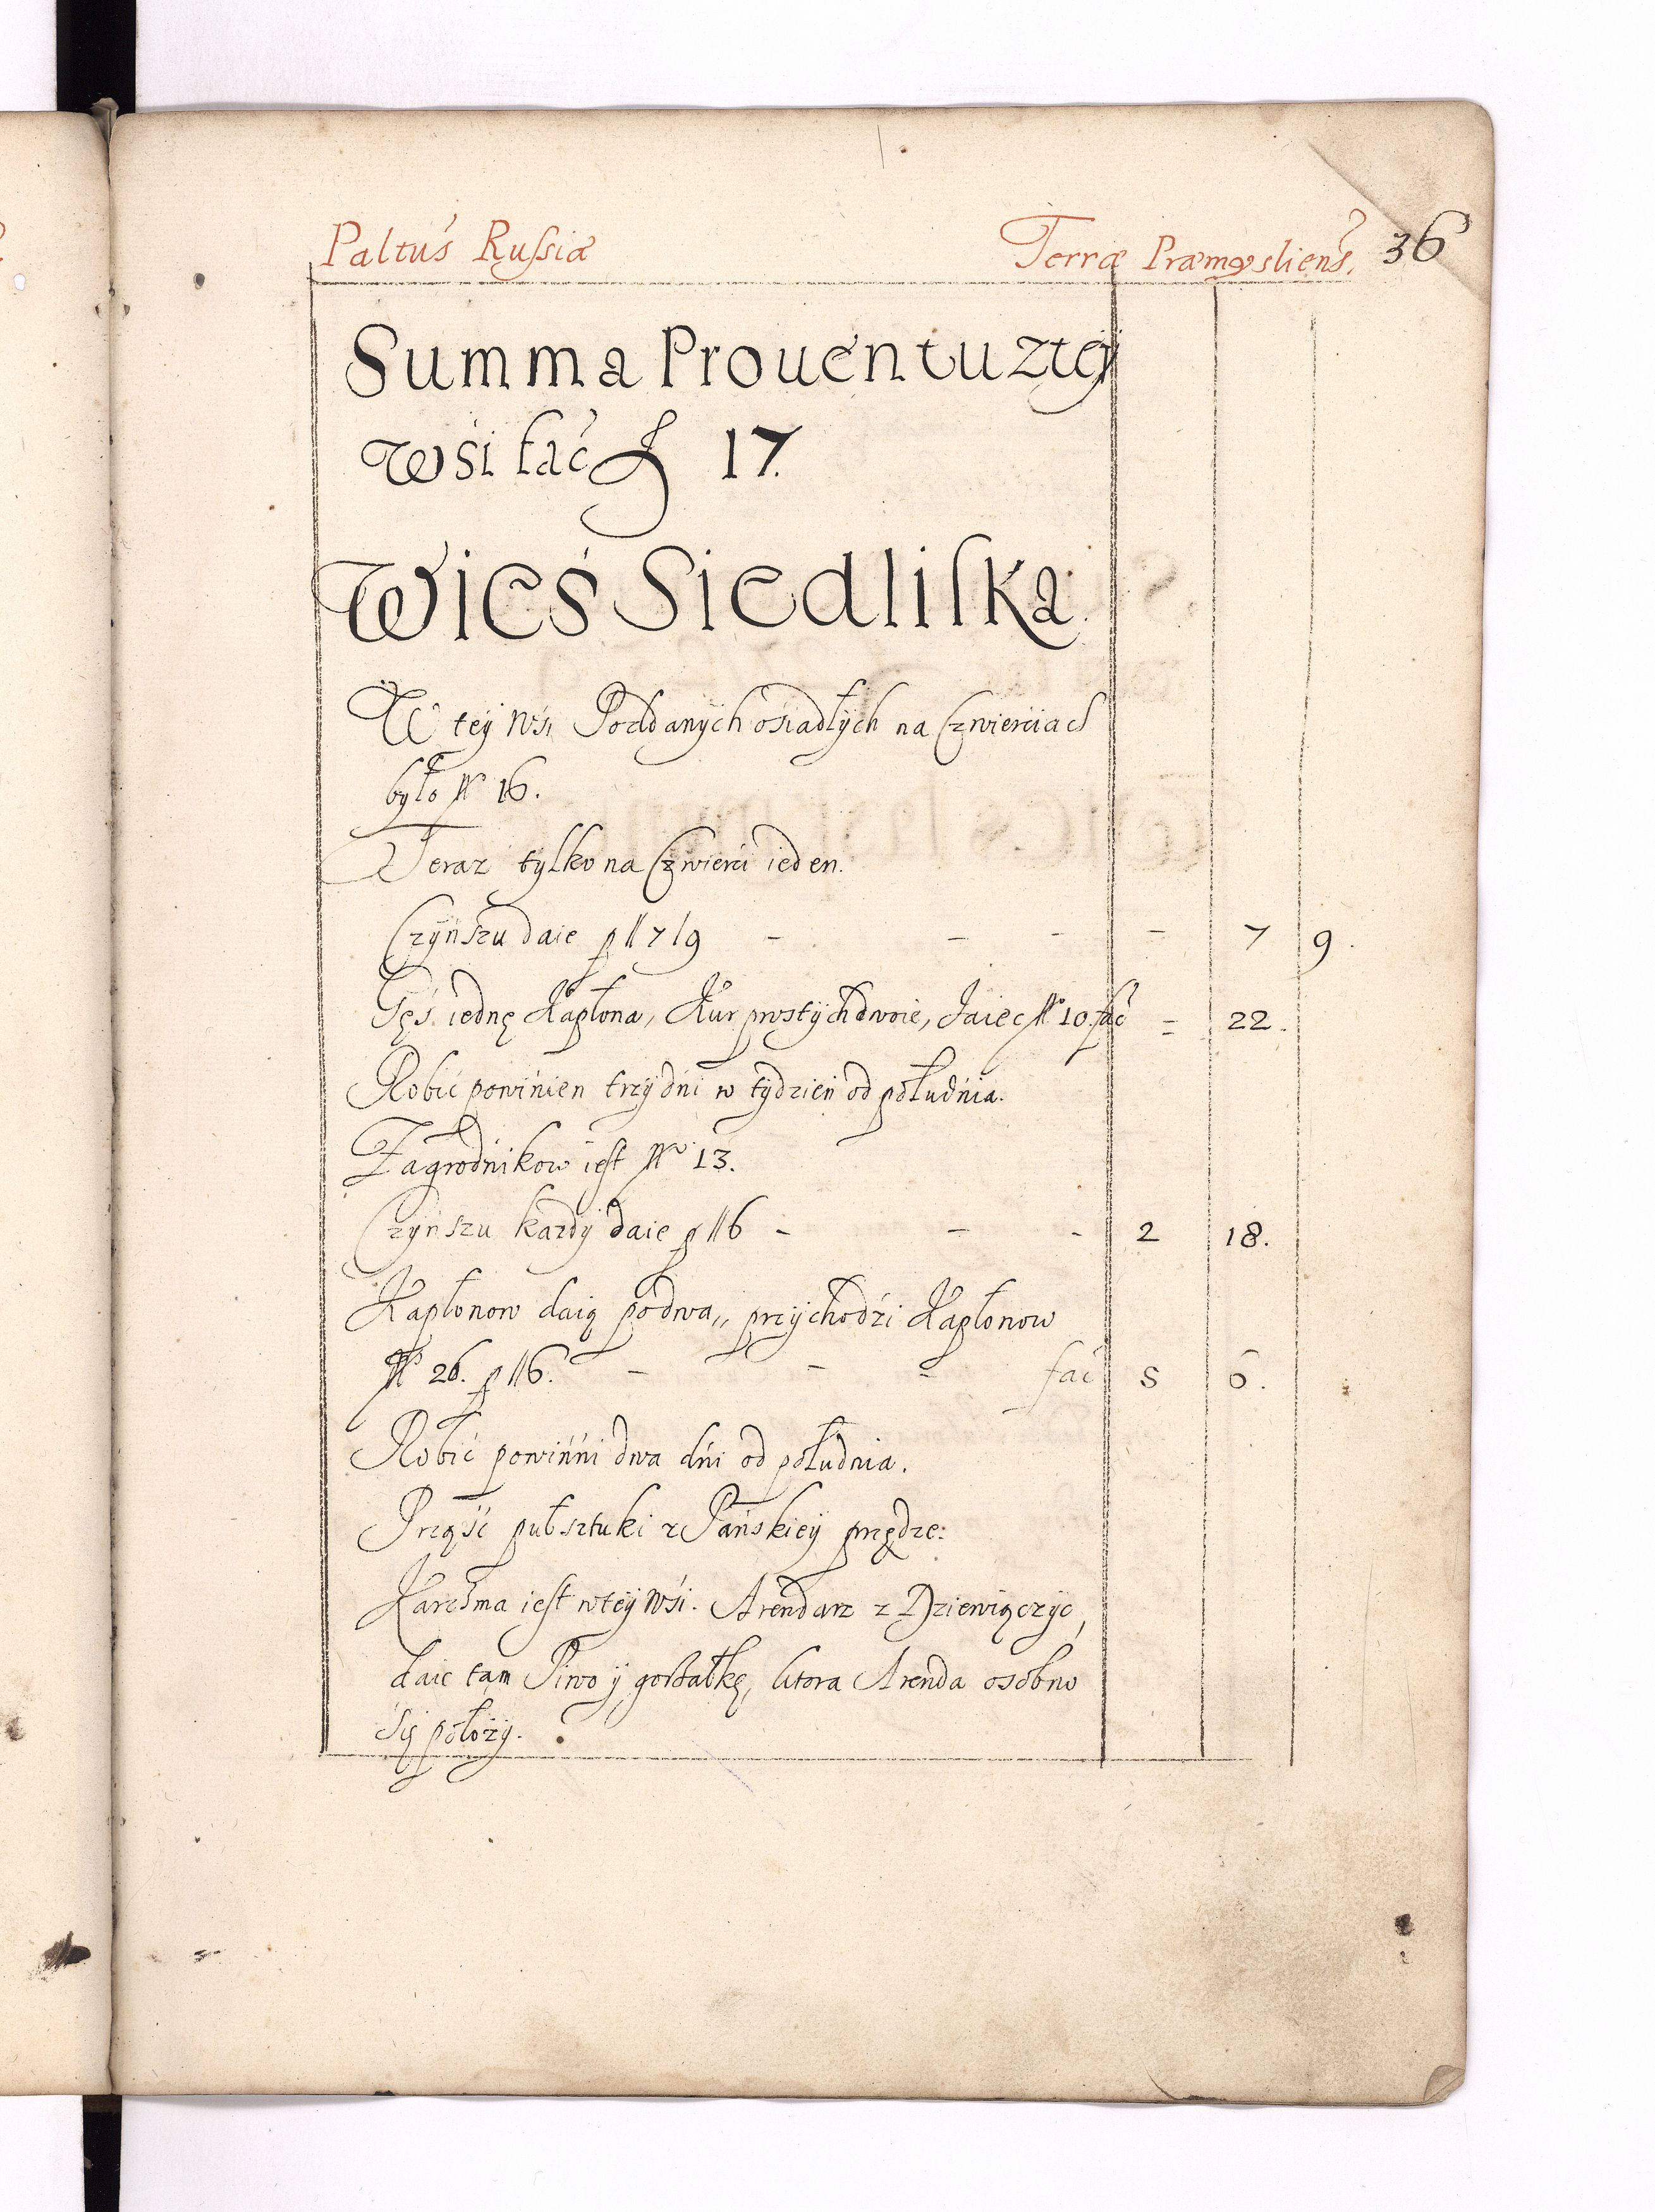 Paltus Russiæ Terræ Præmysliens. 36
Summa Prouentu z tey
wsi fać fl 17.
Wieś Siedliska
W tey wsi Poddanych ośiadłych na Czwierciach
było No 16.
Teraz tylko na Czwierci ieden.
Czynszu daie p ll 7/9 - - - - 7 9.
Gęś iednę Kapłona, Kur prostych dwoie, Jaiec No 10. fać = 22.
Robić powinien trzy dni w tydzień od południa.
Zagrodnikow iest No 13.
Czynszu kazdy daie p ll 6 - - - 2 18.
Kapłonow daią po dwa,, przychodzi Kapłonow
No 26. p ll 6. - - = fać 5 6.
Robić powinni dwa dni od południa.
Prząść puł sztuki z Pańskiey przędze:
Karczma iest w tey wsi. Arendarz z Dziewięczyc,
daie tam Piwo y gorzałkę, ktora Arenda osobno
się położy.